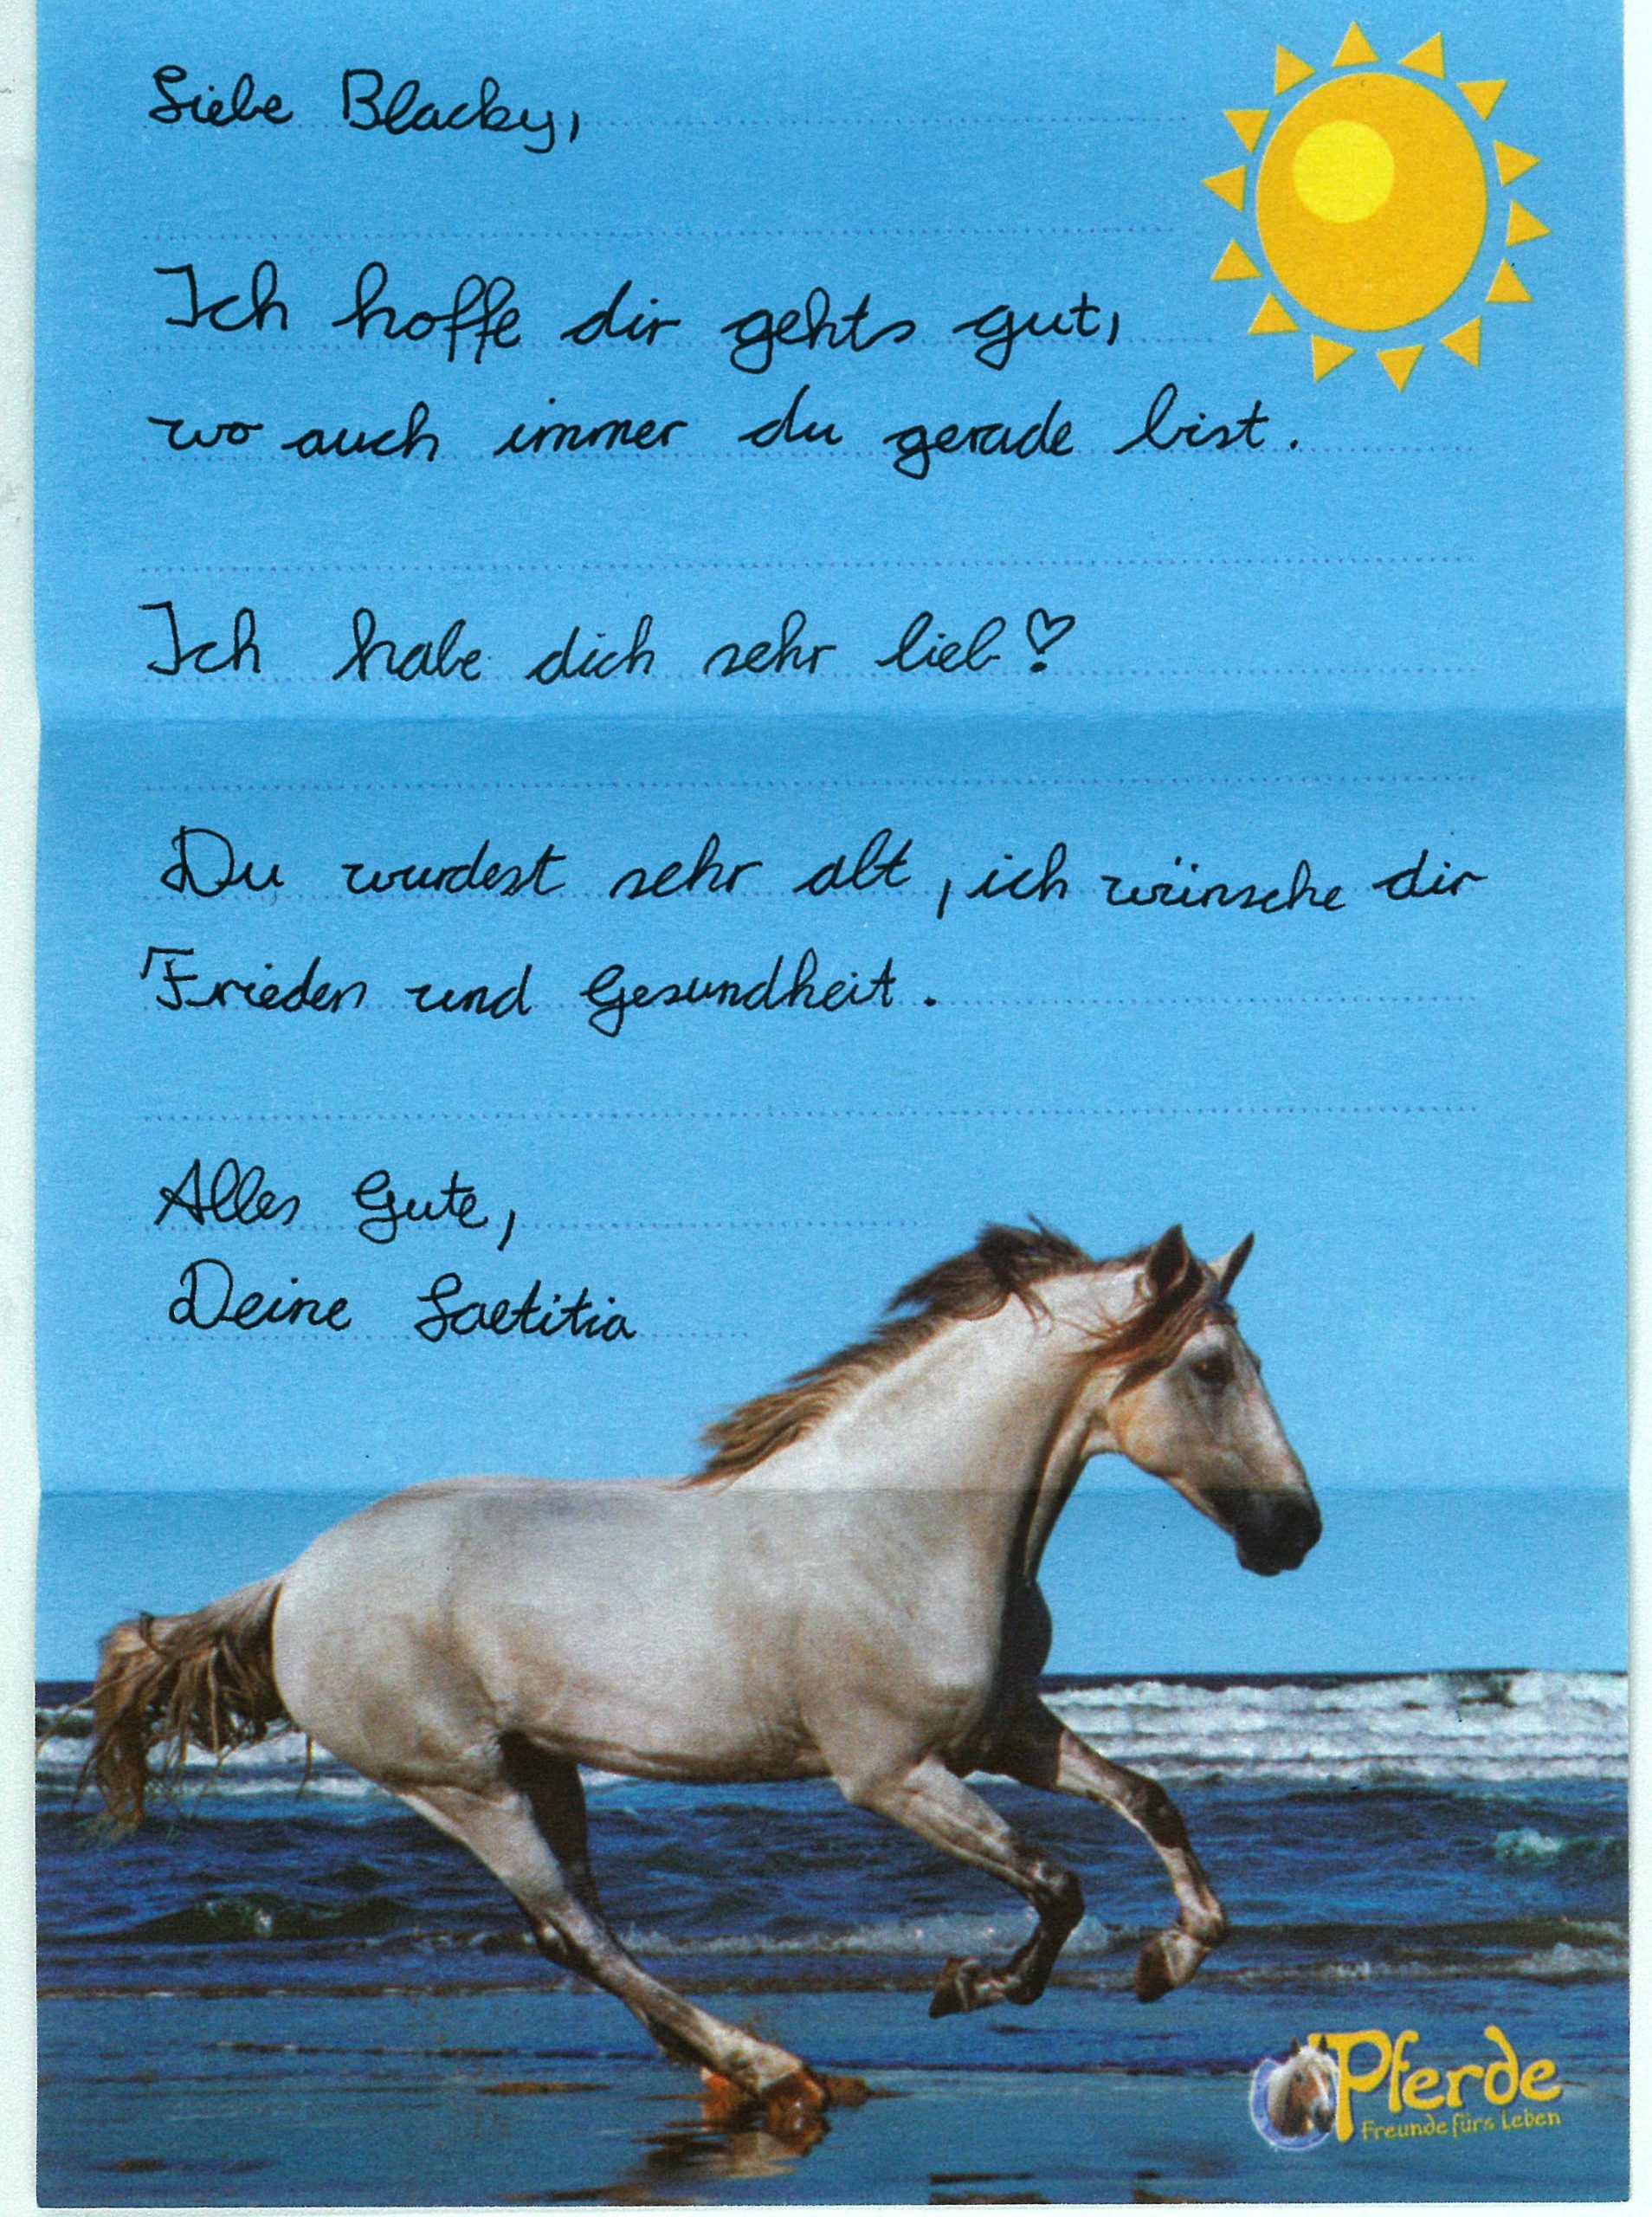 Liebe Blacky,
Ich hoffe dir gehts gut,
wo auch immer du gerade bist.
Ich habe dich sehr lieb!
Du wurdest sehr alt, ich wünsche dir
Frieden und Gesundheit.
Alles Gute,
Deine Laetitia
Pferde
Freunde fürs Leben